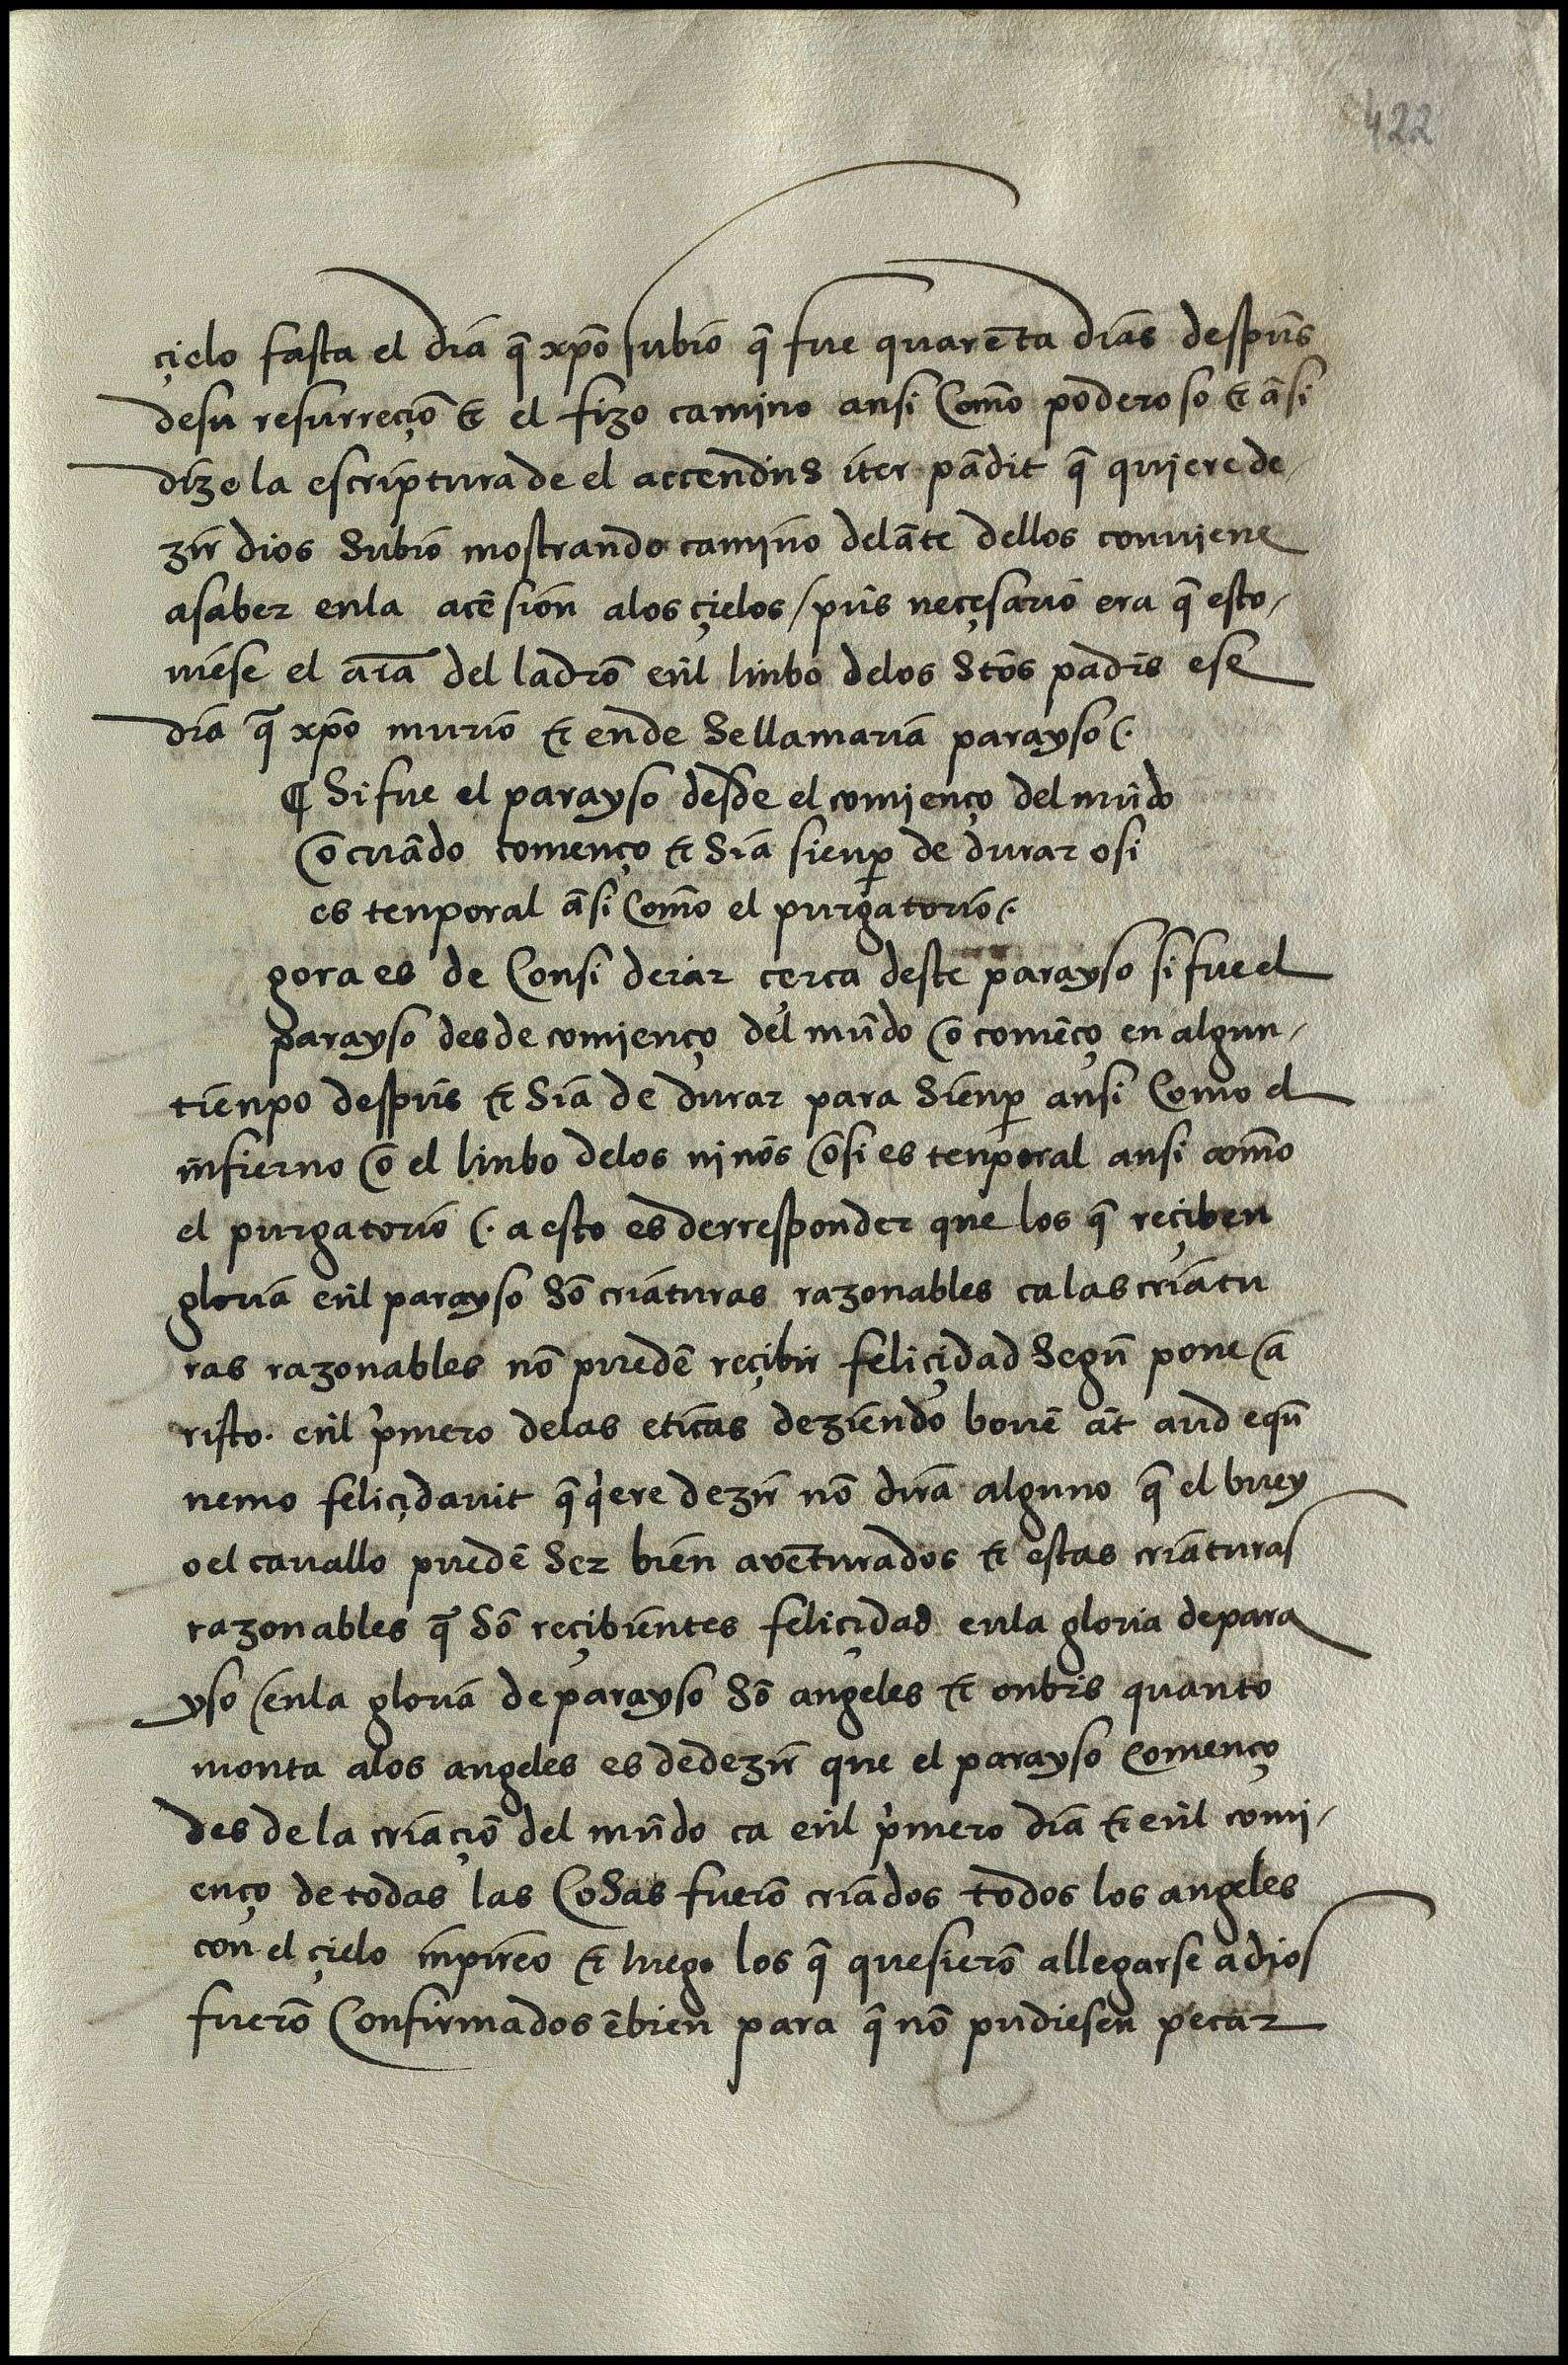 422
çielo fasta el dia q̃ xp̃o subio q̃ fue quarẽta dias despũs
desu resurreçiõ ⁊ el fizo camino ansi Com̃o poderoso ⁊ ãsi
dize la escriptura de el accendĩs iter pãdit q̃ quiere de/
zir̃ dios subio mostrando camino delãte dellos conviene
asaber enla acẽsion alos çielos / pũs neçesario era q̃ esto/
uiese el aĩa del ladrõ eñl linbo delos stõs padr̃s ese
dia q̃ xp̃o murio ⁊ ende sellamaria parayso (.
¶ Si fue el parayso desde el comienço del mũdo
o cuãdo començo ⁊ sia sienp̱ de durar osi
es tenporal ãsi Com̃o el purgatorio (.
gora es de Considerar çerca deste parayso si fue el
parayso desde comienço del mũdo o comẽço en algun/
tienpo despũs ⁊ sia de durar para sienp̱ ansi Como el
infierno o el linbo delos niños osi es tenporal ansi com̃o
el purgatorio (. a esto es derresponder que los q̃ reçiben
gloria eñl parayso sõ criaturas razonables ca las criatu
ras razonables nõ puedẽ reçibir feliçidad segũ pone a
risto. eñl p'mero delas eticas deziendo bouẽ ãt aud equũ
nemo feliçidauit q̃ q'ere dezir̃ nõ dira alguno q̃ el buey
o el cauallo puedẽ ser bien avẽturados ⁊ estas criaturas
razonables q̃ sõ reçibientes feliçidad enla gloria de para
yso enla gloria de parayso sõ angeles ⁊ onbr̃s quanto
monta alos angeles es dedezir̃ que el parayso Començo
desde la criaçiõ del mũdo ca eñl p'mero dia ⁊ eñl comi/
enço de todas las Cosas fuerõ criados todos los angeles
con el çielo inpireo ⁊ luego los q̃ quesierõ allegarse a dios
fuerõ Confirmados ẽbien para q̃ nõ pudiesen pecar